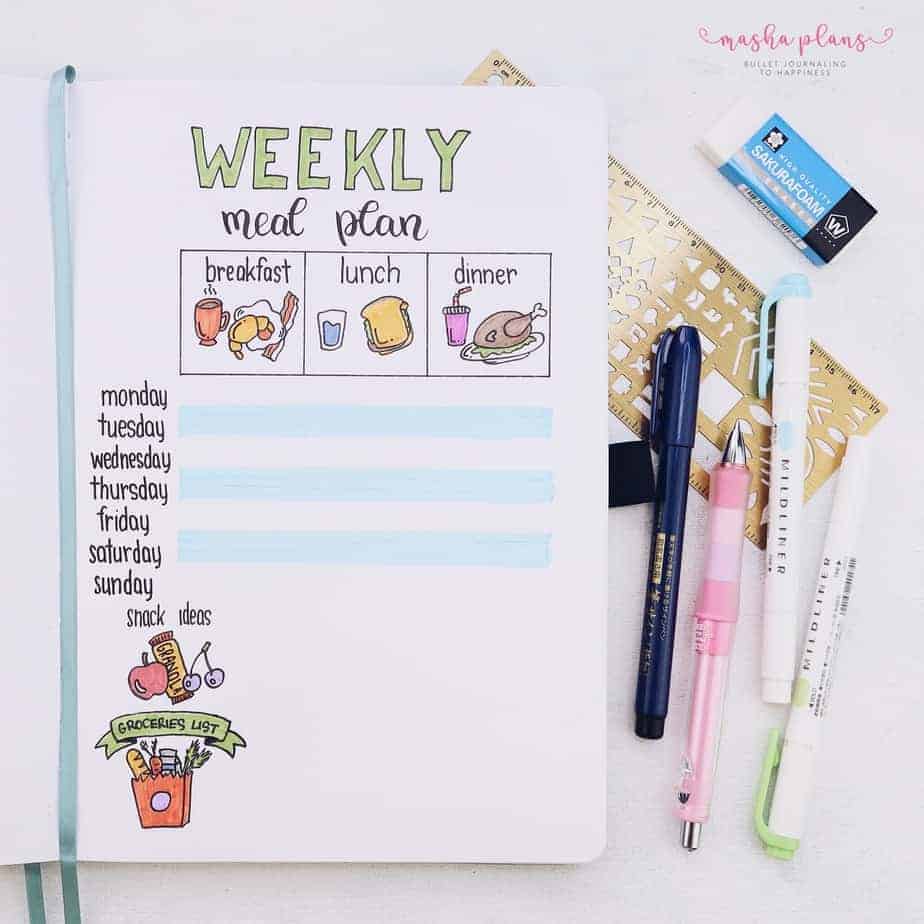 masha plans
BULLET JOURNALING
TO HAPPINESS
WEEKLY
meal plan
breakfast
lunch
dinner
monday
tuesday
wednesday
thursday
friday
saturday
sunday
snack ideas
GRANOLA
GROCERIES LIST
HIGH QUALITY
SAKURAFOAM
ERASER
W
MILDLINER
MILDLINER
cm
10
11
12
13
15
16
17